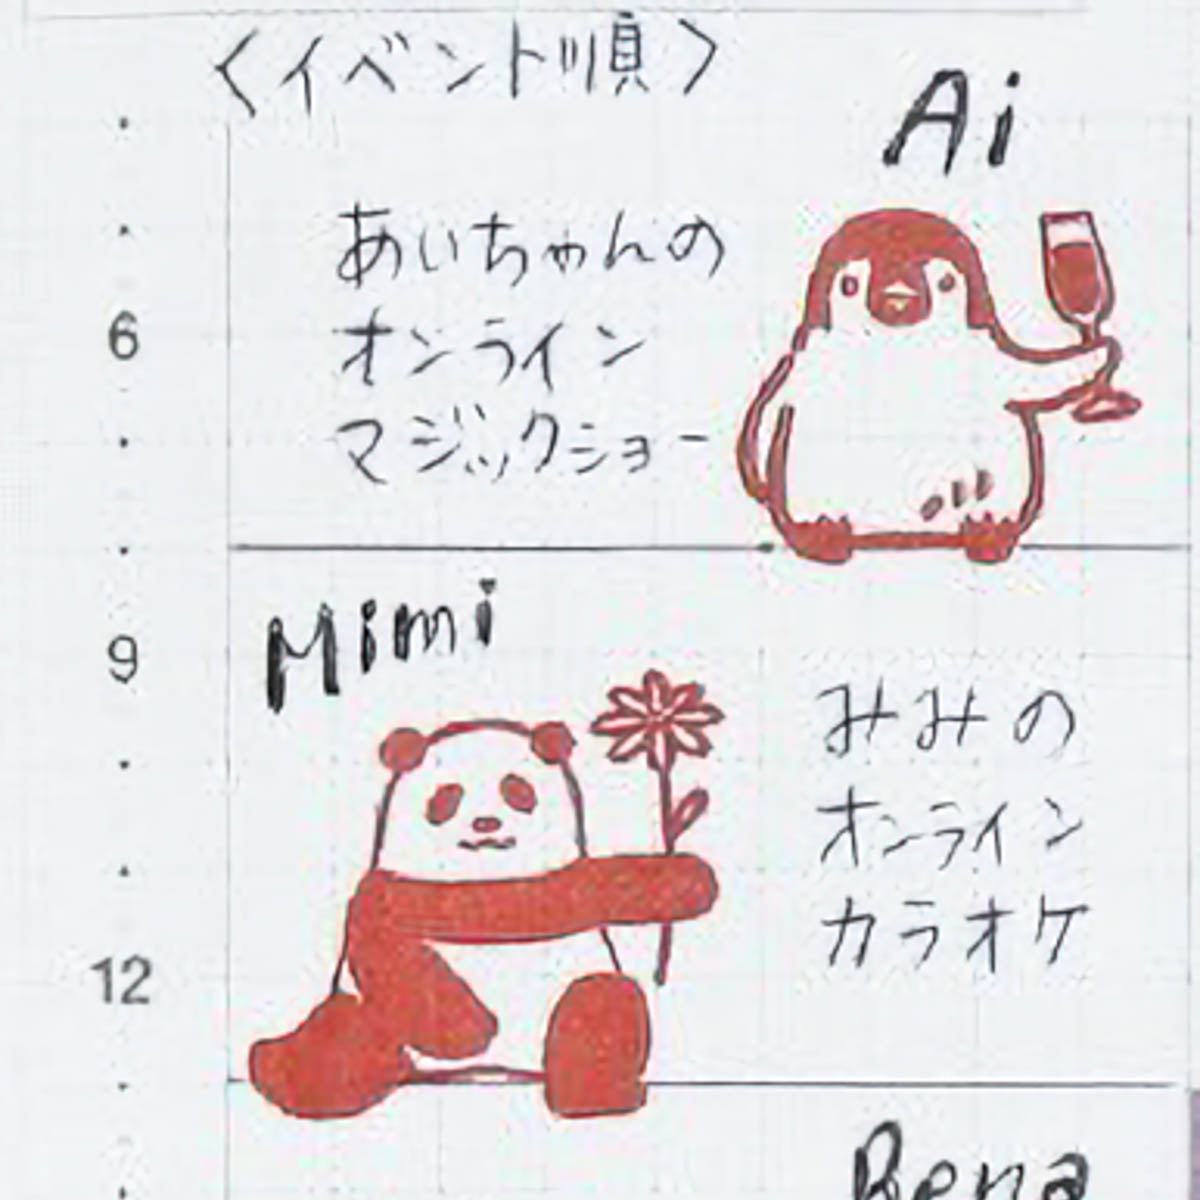 〈イベント順〉
Ai
あいちゃんの
オンライン
マジックショー
6
Mimi
9
みみの
オンライン
カラオケ
12
Rena